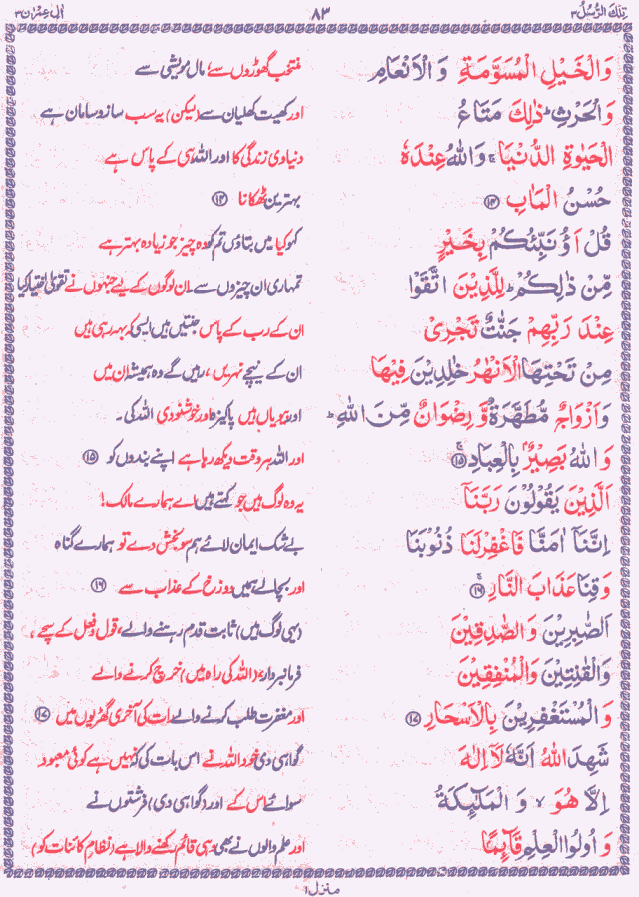 تِلْكَ الرُّسُلُ ٣ ٨٣ اٰلِ عِمْرٰن ٣
وَالْخَيْلِ الْمُسَوَّمَةِ وَ الْاَنْعَامِ منتخب گھوڑوں سے، مال مویشی سے
وَالْحَرْثِ ؕ ذٰلِكَ مَتَاعُ اور کھیت کھلیان سے (لیکن) یہ سب سازوسامان ہے
الْحَيٰوةِ الدُّنْيَا ۚ وَاللّٰهُ عِنْدَهٗ دنیاوی زندگی کا اور اللہ ہی کے پاس ہے
حُسْنُ الْمَاٰبِ ﴿١٤﴾ بہترین ٹھکانا ﴿١٤﴾
قُلْ اَؤُنَبِّئُكُمْ بِخَيْرٍ کہو کیا میں بتاؤں تم کو وہ چیز جو زیادہ بہتر ہے
مِّنْ ذٰلِكُمْ ؕ لِلَّذِيْنَ اتَّقَوْا تمہاری ان چیزوں سے۔ ان لوگوں کے لیے جنہوں نے تقویٰ اختیار کیا
عِنْدَ رَبِّهِمْ جَنّٰتٌ تَجْرِيْ ان کے رب کے پاس جنتیں ہیں ایسی کہ بہہ رہی ہیں
مِنْ تَحْتِهَا الْاَنْهٰرُ خٰلِدِيْنَ فِيْهَا ان کے نیچے نہریں، رہیں گے وہ ہمیشہ ان میں
وَاَزْوَاجٌ مُّطَهَّرَةٌ وَّ رِضْوَانٌ مِّنَ اللّٰهِ ؕ اور بیویاں ہیں پاکیزہ اور خوشنودی اللہ کی۔
وَ اللّٰهُ بَصِيْرٌۢ بِالْعِبَادِ ۚ ﴿١٥﴾ اور اللہ ہر وقت دیکھ رہا ہے اپنے بندوں کو ﴿١٥﴾
اَلَّذِيْنَ يَقُوْلُوْنَ رَبَّنَاۤ یہ وہ لوگ ہیں جو کہتے ہیں اے ہمارے مالک!
اِنَّنَاۤ اٰمَنَّا فَاغْفِرْ لَنَا ذُنُوْبَنَا بے شک ایمان لائے ہم سو بخش دے تو ہمارے گناہ
وَقِنَا عَذَابَ النَّارِ ۚ ﴿١٦﴾ اور بچالے ہمیں دوزخ کے عذاب سے ﴿١٦﴾
اَلصّٰبِرِيْنَ وَ الصّٰدِقِيْنَ (یہی لوگ ہیں) ثابت قدم رہنے والے، قول و فعل کے سچے،
وَالْقٰنِتِيْنَ وَالْمُنْفِقِيْنَ فرمانبردار، (اللہ کی راہ میں) خرچ کرنے والے
وَ الْمُسْتَغْفِرِيْنَ بِالْاَسْحَارِ ﴿١٧﴾ اور مغفرت طلب کرنے والے رات کی آخری گھڑیوں میں ﴿١٧﴾
شَهِدَ اللّٰهُ اَنَّهٗ لَاۤ اِلٰهَ گواہی دی خود اللہ نے اس بات کی کہ نہیں ہے کوئی معبود
اِلَّا هُوَ ۙ وَ الْمَلٰٓئِكَةُ سوائے اس کے اور (گواہی دی) فرشتوں نے
وَ اُولُوا الْعِلْمِ قَآئِمًا اور علم والوں نے بھی وہی قائم رکھنے والا ہے (نظامِ کائنات کو)
منزل ١